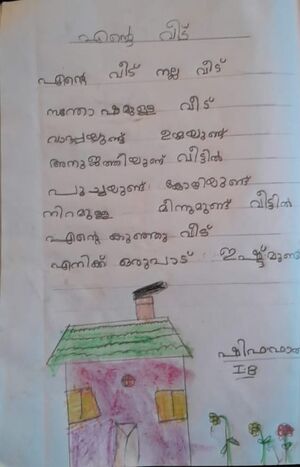 എന്റെ വീട്
എന്റെ വീട് നല്ല വീട്
സന്തോഷമുള്ള വീട്
വാപ്പയുണ്ട് ഉമ്മയുണ്ട്
അനുജത്തിയുണ്ട് വീട്ടിൽ
പൂച്ചയുണ്ട് കോഴിയുണ്ട്
നിറമുള്ള മീനുമുണ്ട് വീട്ടിൽ
എന്റെ കുഞ്ഞു വീട്
എനിക്ക് ഒരുപാട് ഇഷ്ട്ടമുണ്ട
I B